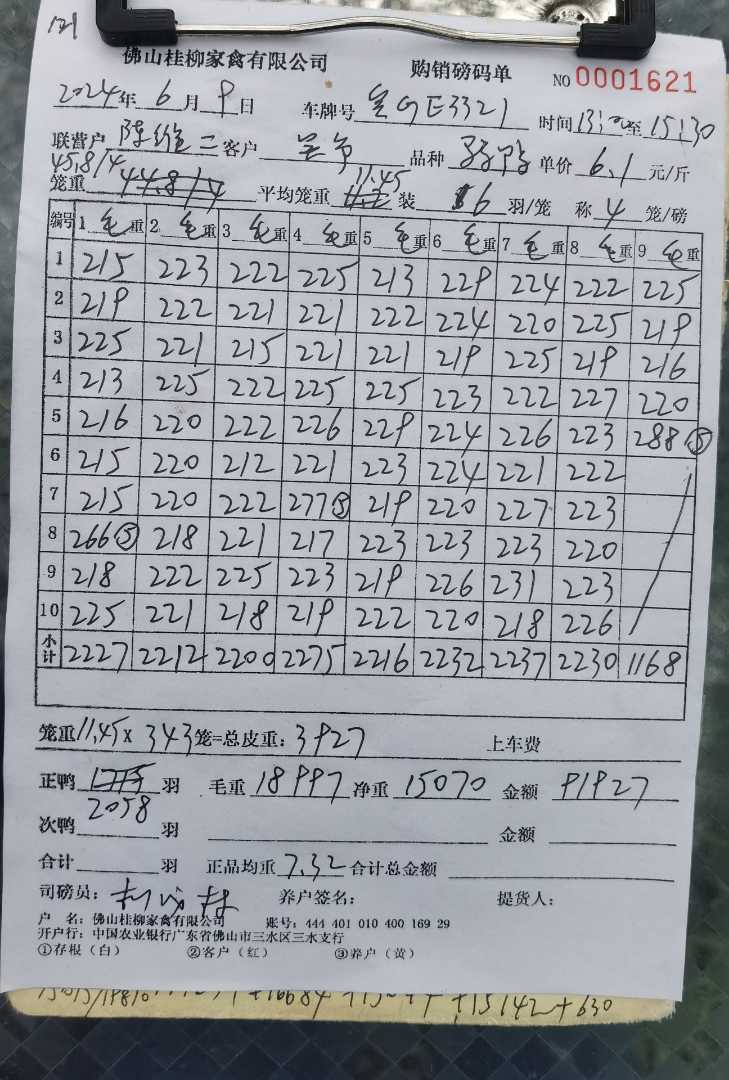 121
佛山桂柳家禽有限公司 购销磅码单 NO 0001621
2024年 6 月 9 日 车牌号 GE3321 时间 13: 至 15:30
联营户 陈维二 客户 品种 单价 6.1 元/斤
45.8/4 11.45
笼重 44.8/4 平均笼重 11.2 装 6 羽/笼 称 4 笼/磅
编号 1 毛重 2 毛重 3 毛重 4 毛重 5 毛重 6 毛重 7 毛重 8 毛重 9 毛重
1 215 223 222 225 213 229 224 222 225
2 219 222 221 221 222 224 220 225 219
3 225 221 215 221 221 219 225 219 216
4 213 225 222 225 225 223 222 227 220
5 216 220 222 226 229 224 226 223 288⑤
6 215 220 212 221 223 224 221 222
7 215 220 222 277⑤ 219 220 227 223
8 266⑤ 218 221 217 223 223 223 220
9 218 222 225 223 219 226 231 223
10 225 221 218 219 222 220 218 226
小计 2227 2212 2200 2275 2216 2232 2237 2230 1168
笼重 11.45 x 343 笼=总皮重: 3927 上车费
正鸭 羽 毛重 18997 净重 15070 金额 91927
2058
次鸭 羽 金额
合计 羽 正品均重 7.32 合计总金额
司磅员: 养户签名: 提货人:
户 名: 佛山桂柳家禽有限公司 账号: 444 401 010 400 169 29
开户行: 中国农业银行广东省佛山市三水区三水支行
①存根(白) ②客户(红) ③养户(黄)
+15142+630